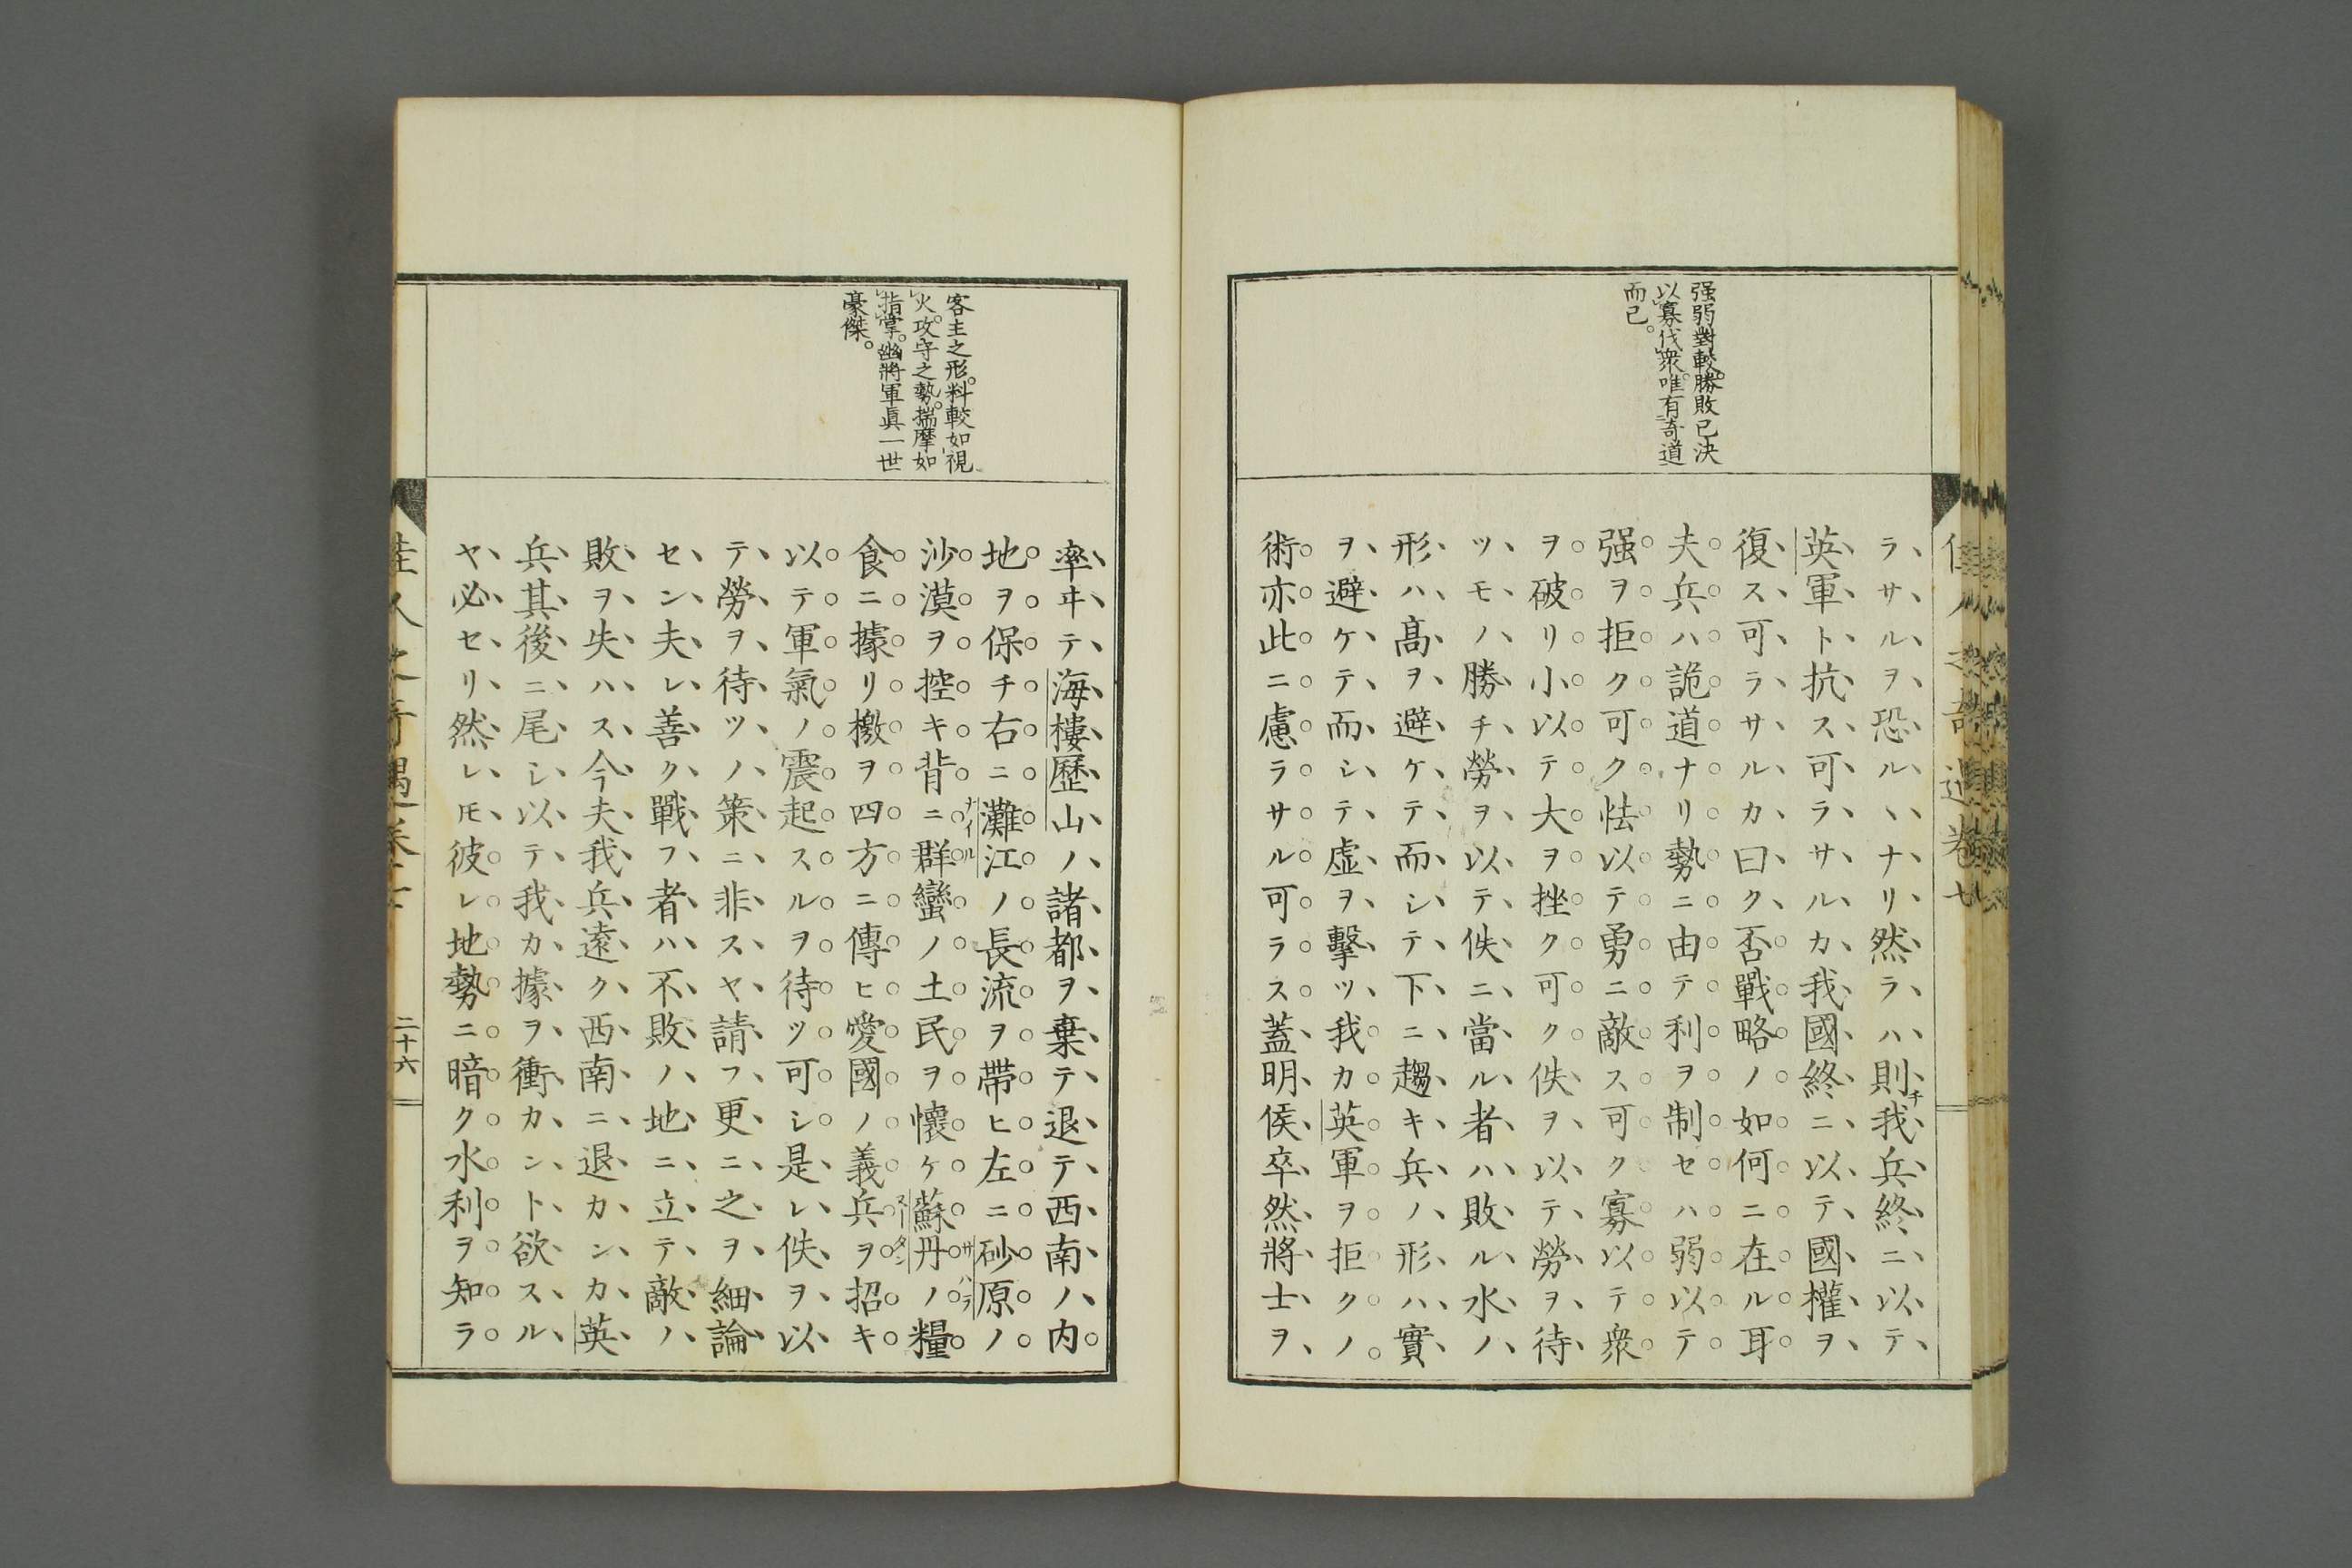 强弱對較。勝敗已決
以寡伐衆。唯有奇道
而已。
ラサルヲ恐ルヽナリ然ラハ則チ我兵終ニ以テ
英軍ト抗ス可ラサルカ我國終ニ以テ國權ヲ
復ス可ラサルカ曰ク否戰略ノ如何ニ在ル耳
夫兵ハ詭道ナリ勢ニ由テ利ヲ制セハ弱以テ
强ヲ拒ク可ク怯以テ勇ニ敵ス可ク寡以テ衆
ヲ破リ小以テ大ヲ挫ク可ク佚ヲ以テ勞ヲ待
ツモノハ勝チ勞ヲ以テ佚ニ當ル者ハ敗ル水ノ
形ハ高ヲ避ケテ而シテ下ニ趨キ兵ノ形ハ實
ヲ避ケテ而シテ虛ヲ擊ツ我カ英軍ヲ拒クノ
術亦此ニ慮ラサル可ラス蓋明侯卒然將士ヲ
客主之形。料較如視
火。攻守之勢。揣摩如
指掌。幽將軍眞一世
豪傑。
率ヰテ海樓歷山ノ諸都ヲ棄テ退テ西南ノ内
地ヲ保チ右ニ灘江ナイルノ長流ヲ帶ヒ左ニ砂原サハラノ
沙漠ヲ控キ背ニ群蠻ノ土民ヲ懷ケ蘇丹スータンノ糧
食ニ據リ檄ヲ四方ニ傳ヒ愛國ノ義兵ヲ招キ
以テ軍氣ノ震起スルヲ待ツ可シ是レ佚ヲ以
テ勞ヲ待ツノ策ニ非スヤ請フ更ニ之ヲ細論
セン夫レ善ク戰フ者ハ不敗ノ地ニ立テ敵ノ
敗ヲ失ハス今夫我兵遠ク西南ニ退カンカ英
兵其後ニ尾シ以テ我カ據ヲ衝カント欲スル
ヤ必セリ然レ𪜈彼レ地勢ニ暗ク水利ヲ知ラ
佳人之奇遇卷七
二十六